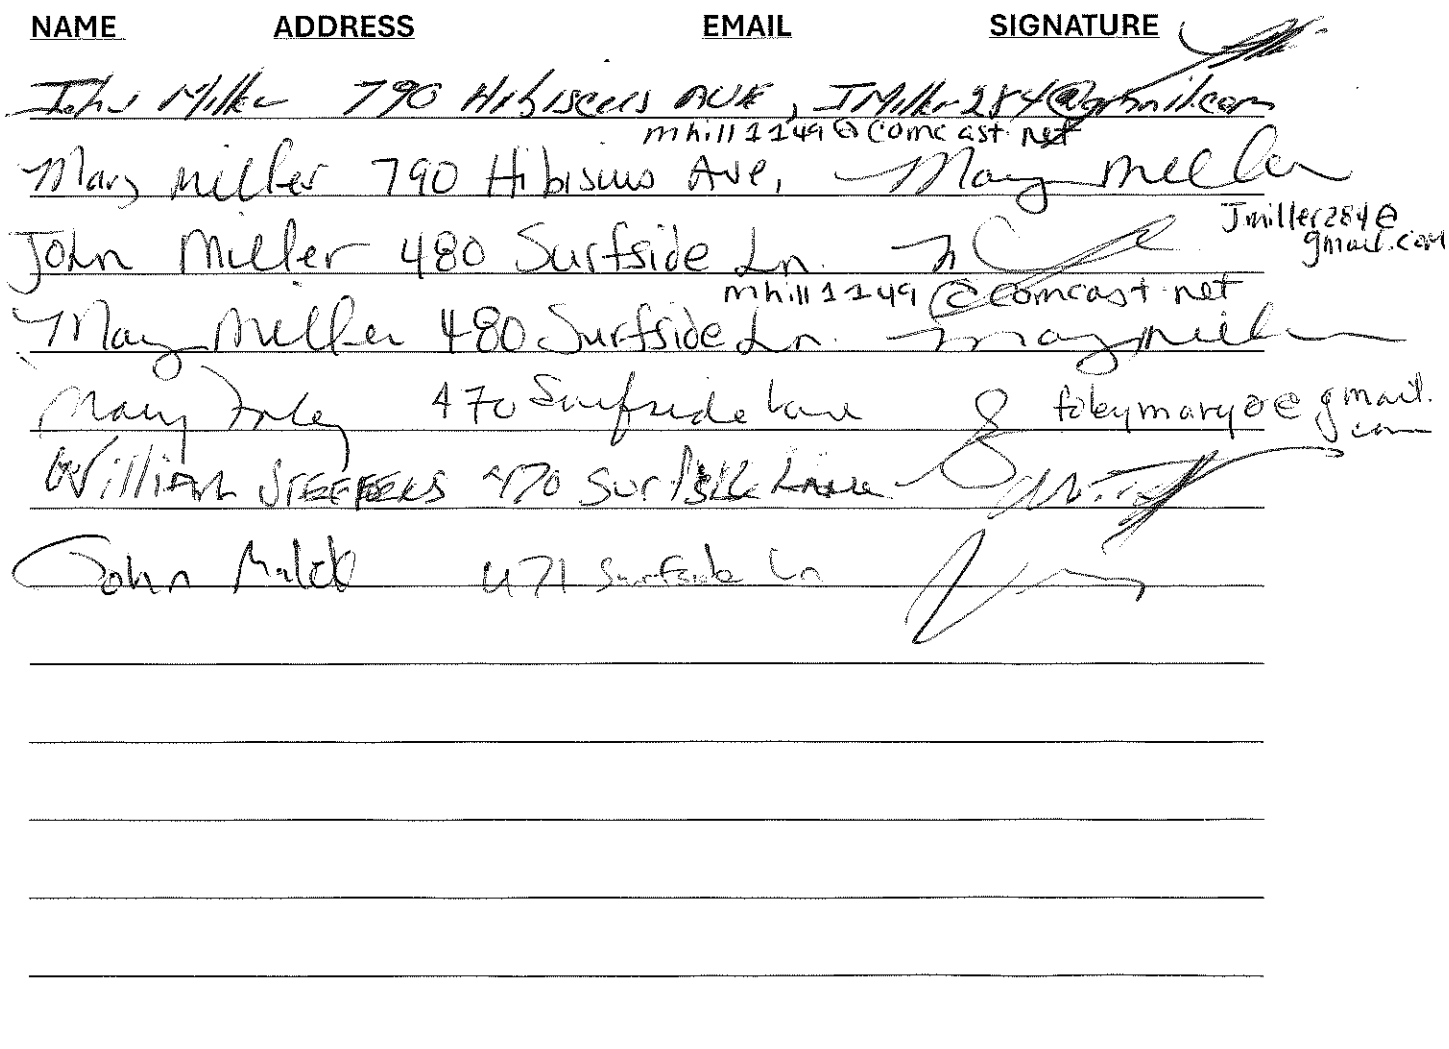 NAME ADDRESS EMAIL SIGNATURE
John Miller 790 Hibiscus AVE, JMiller284@gmail.com
mhill1149@comcast.net
Mary Miller 790 Hibiscus Ave, Mary Miller
John Miller 480 Surfside Ln. Jmiller284@
gmail.com
mhill1149@comcast.net
Mary Miller 480 Surfside Ln. Mary Miller
Mary Foley 470 Surfside Lane foleymary@gmail.
com
William 470 Surfside Lane
John 471 Surfside Ln